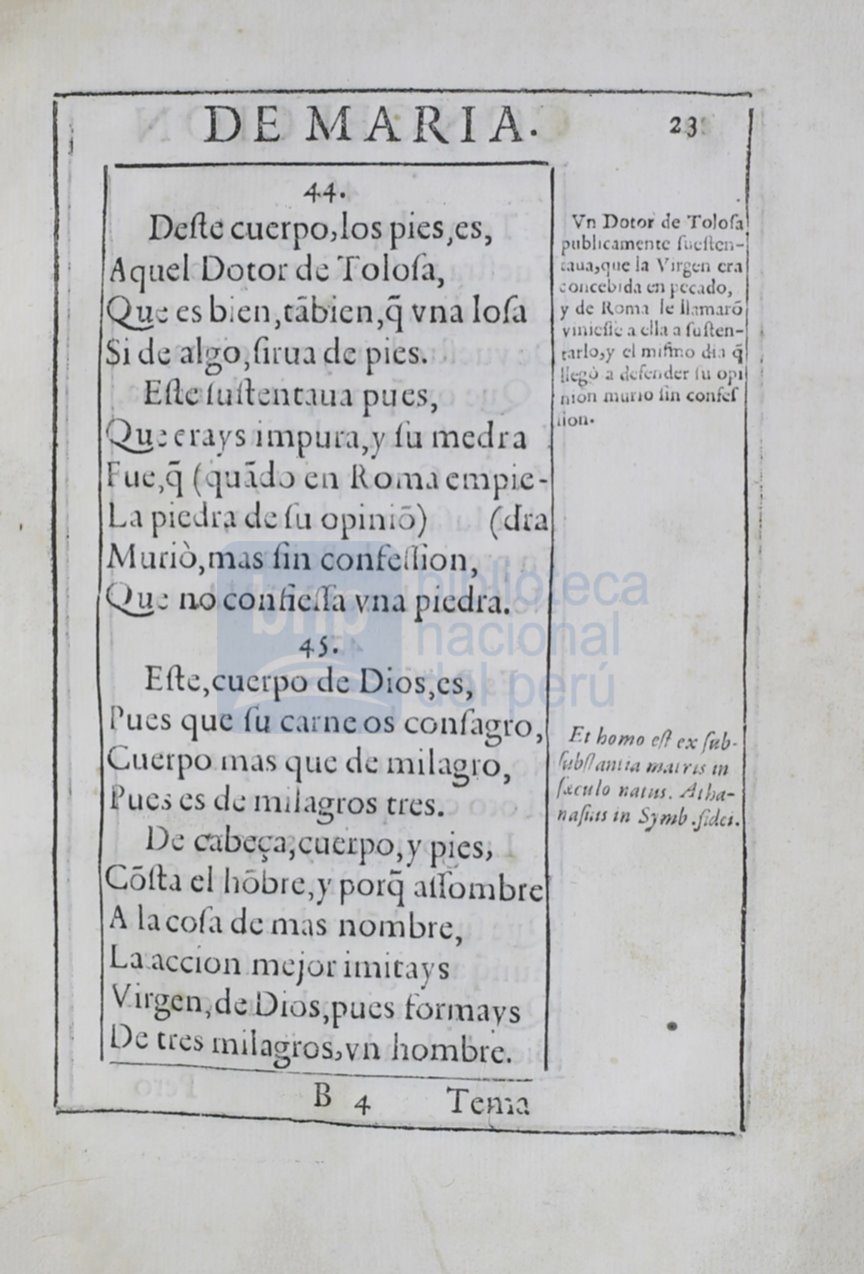 DE MARIA.
23
44.
Deſte cuerpo,los pies,es,
Aquel Dotor de Toloſa,
Que es bien,tãbien,q̃ vna loſa
Si de algo,ſirua de pies.
Eſte ſuſtentaua pues,
Que erays impura,y ſu medra
Fue,q̃ (quãdo en Roma empie-
La piedra de ſu opiniõ) (dra
Muriò,mas ſin confeſſion,
Que no confieſſa vna piedra.
45.
Eſte,cuerpo de Dios,es,
Pues que ſu carne os conſagro,
Cuerpo mas que de milagro,
Pues es de milagros tres.
De cabeça,cuerpo,y pies,
Cõſta el hõbre,y porq̃ aſſombre
A la coſa de mas nombre,
La accion mejor imitays
Virgen,de Dios,pues formays
De tres milagros,vn hombre.
B 4 Tema
Vn Dotor de Toloſa
publicamente ſueſten-
taua,que la Virgen era
concebida en pecado,
y de Roma le llamarõ
vinieſſe a ella a ſuſten-
tarlo,y el miſmo dia q̃
llegò a defender ſu opi
nion murio ſin confeſ
ſion.
Et homo eſt ex ſub-
ſubſtantia matris in
ſæculo natus. Atha-
naſius in Symb.fidei.
bnp
biblioteca
nacional
del perú